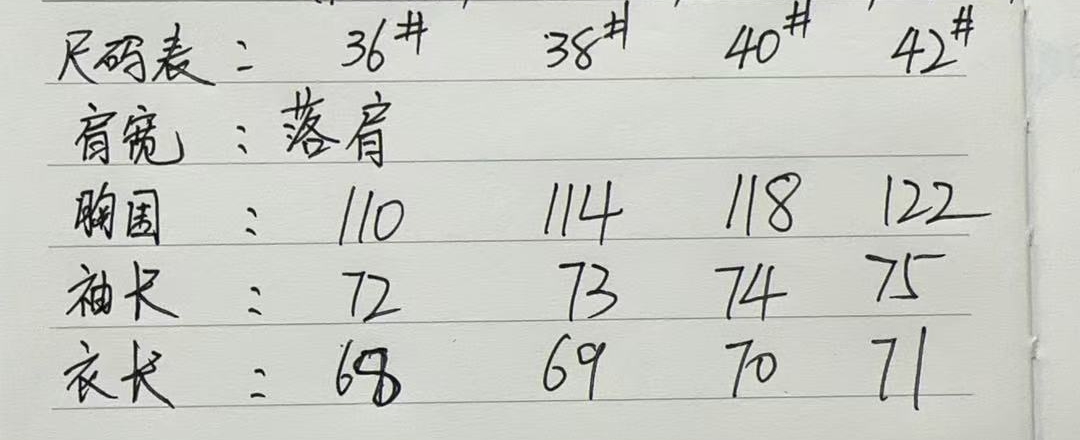 尺码表： 36# 38# 40# 42#
肩宽：落肩
胸围： 110 114 118 122
袖长： 72 73 74 75
衣长： 68 69 70 71